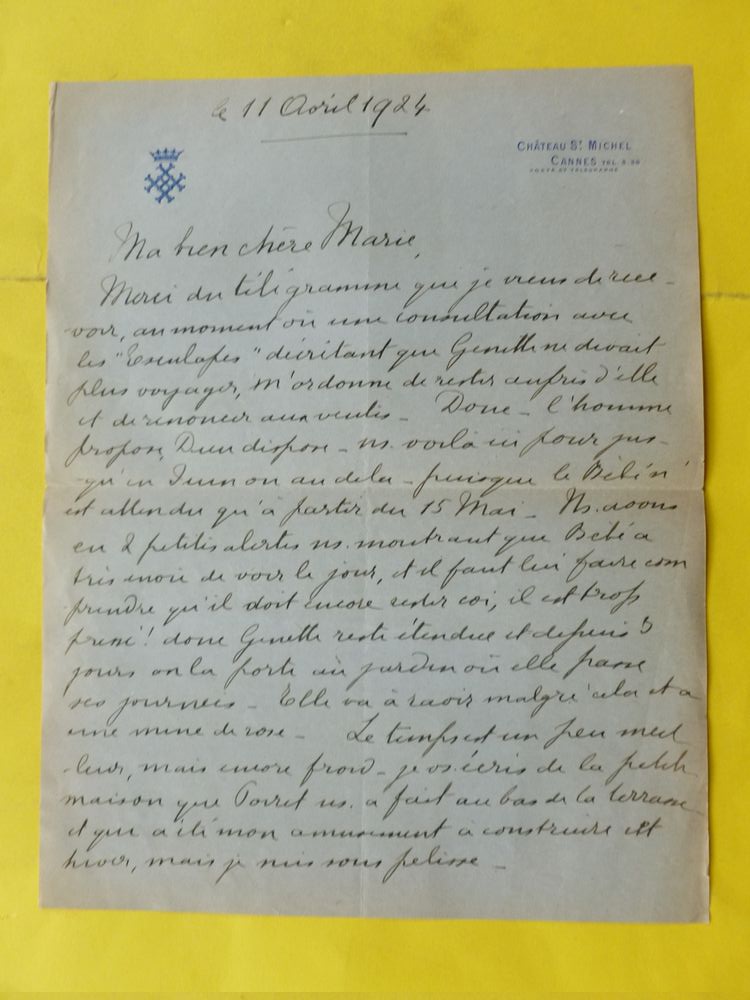 le 11 Avril 1924
CHÂTEAU St MICHEL
CANNES TEL. 8.
POSTE ET TÉLÉGRAPHE
Ma bien chère Marie,
Merci du télégramme que je viens de rece-
voir, au moment où une consultation avec
les "Esculapes" décrétant que Genette ne devait
plus voyager, m'ordonne de rester auprès d'elle
et de renoncer aux ventes - Donc - l'homme
propose, Dieu dispose - ns. voilà ici pour jus-
qu'en Juin ou au delà - puisque le Bébé n'
est attendu qu'à partir du 15 Mai - Ns. avons
eu 2 petites alertes ns. montrant que Bébé a
très envie de voir le jour, et il faut lui faire com
prendre qu'il doit encore rester coi, il est trop
pressé ! donc Genette reste étendue et depuis 3
jours on la porte au jardin où elle passe
ses journées - Elle va à ravir malgré cela et a
une mine de rose - Le temps est un peu meil
-leur, mais encore froid - je vs. écris de la petite
maison que ns. a fait au bas de la terrasse
et qui a été mon amusement à construire cet
hiver, mais je suis sous pelisse -